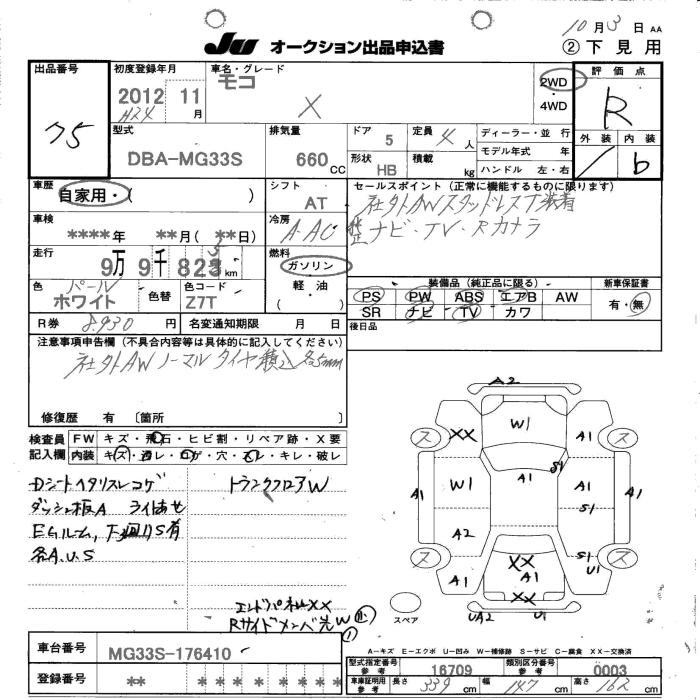 10月3日 AA
Ju オークション出品申込書
② 下見用
出品番号
75
初度登録年月
2012 11月
H24
車名・グレード
モコ
X
2WD
・4WD
評価点
R
外装 内装
b
型式
DBA-MG33S
排気量
660 CC
ドア 5
定員 4 人
形状 HB
積載 kg
ディーラー・並行
モデル年式 年
ハンドル 左・右
車歴
自家用・( )
シフト
AT
セールスポイント (正常に機能するものに限ります)
社外AWスタッドレスT装着
ナビ・TV・Rカメラ
車検
****年 **月(**日)
冷房
A・AC
走行
9万 9千 823 km
3
燃料
ガソリン
・
軽油
( )
色
パール
ホワイト
色替
色コード
Z7T
装備品 (純正品に限る)
PS PW ABS エアB AW
SR ナビ TV カワ
新車保証書
有・無
R券 8,930円
名変通知期限 月 日
後日品
注意事項申告欄 (不具合内容等は具体的に記入してください)
社外AW ノーマルタイヤ積込 各5mm
修復歴 有 〔箇所
検査員
記入欄
FW キズ・飛石・ヒビ割・リペア跡・X要
内装 キズ・コゲ・穴・キレ・破レ
Dシートヘタリスレコゲ
ダッシュ板A ライトあせ
EGルーム,下回りS有
各A.U.S
トランクフロアW
エンドパネルXX
Rサイドメンバ先W
A2
ス XX W1 A1 ス
A1 S1
A1 W1 A1 A1
S1
A2
ス XX S1 U1 ス
A1 A1 A1
XX
スペア UA2 U1
A-キズ E-エクボ U-凹み W-補修跡 S-サビ C-腐食 XX-交換済
車台番号
MG33S-176410
登録番号
** * * * * * *
型式指定番号
16709
類別区分番号
0003
車庫証明用 長さ 339 cm 幅 147 cm 高さ 162 cm